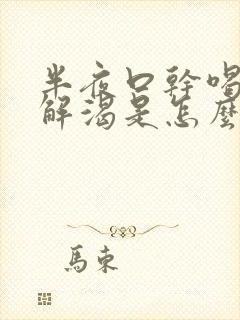 半夜口幹喝
解渴是怎麼
馬東